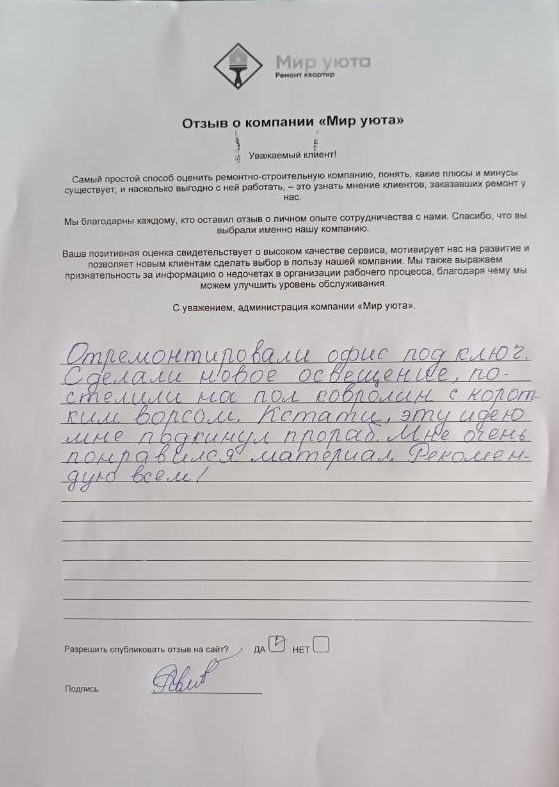 Мир уюта
Ремонт квартир
Отзыв о компании «Мир уюта»
Уважаемый клиент!
Самый простой способ оценить ремонтно-строительную компанию, понять, какие плюсы и минусы
существует, и насколько выгодно с ней работать, – это узнать мнение клиентов, заказавших ремонт у
нас.
Мы благодарны каждому, кто оставил отзыв о личном опыте сотрудничества с нами. Спасибо, что вы
выбрали именно нашу компанию.
Ваша позитивная оценка свидетельствует о высоком качестве сервиса, мотивирует нас на развитие и
позволяет новым клиентам сделать выбор в пользу нашей компании. Мы также выражаем
признательность за информацию о недочетах в организации рабочего процесса, благодаря чему мы
можем улучшить уровень обслуживания.
С уважением, администрация компании «Мир уюта».
Отремонтировали офис под ключ.
Сделали новое освещение, по-
стелили на пол ковролин с корот-
ким ворсом. Кстати, эту идею
мне подкинул прораб. Мне очень
понравился материал. Рекомен-
дую всем!
Разрешить опубликовать отзыв на сайт? ДА НЕТ
Подпись